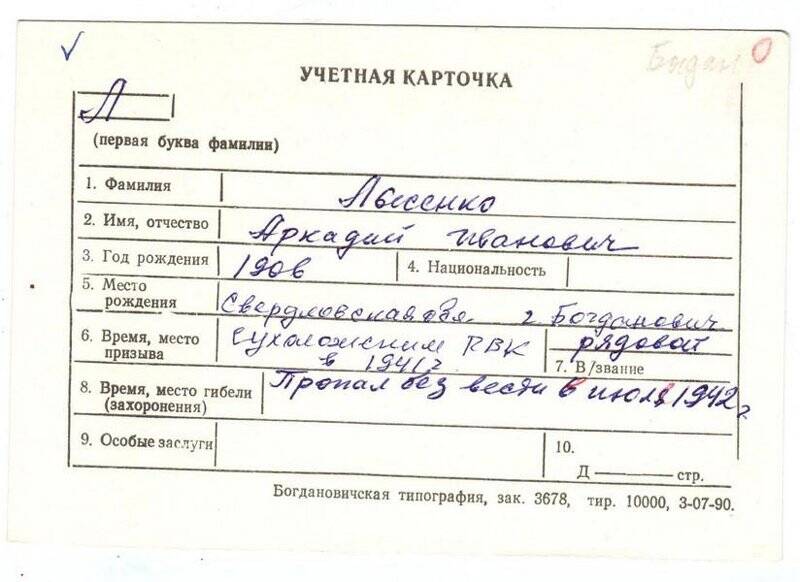 Богдан
УЧЕТНАЯ КАРТОЧКА
Л
(первая буква фамилии)
1. Фамилия Лысенко
2. Имя, отчество Аркадий Иванович
3. Год рождения 1906 4. Национальность
5. Место рождения Свердловская обл. г. Богданович
6. Время, место призыва Сухоложским РВК в 1941 г. рядовой
7. В/звание
8. Время, место гибели (захоронения) Пропал без вести в июля 1942 г
9. Особые заслуги 10.
Д стр.
Богдановичская типография, зак. 3678, тир. 10000, 3-07-90.